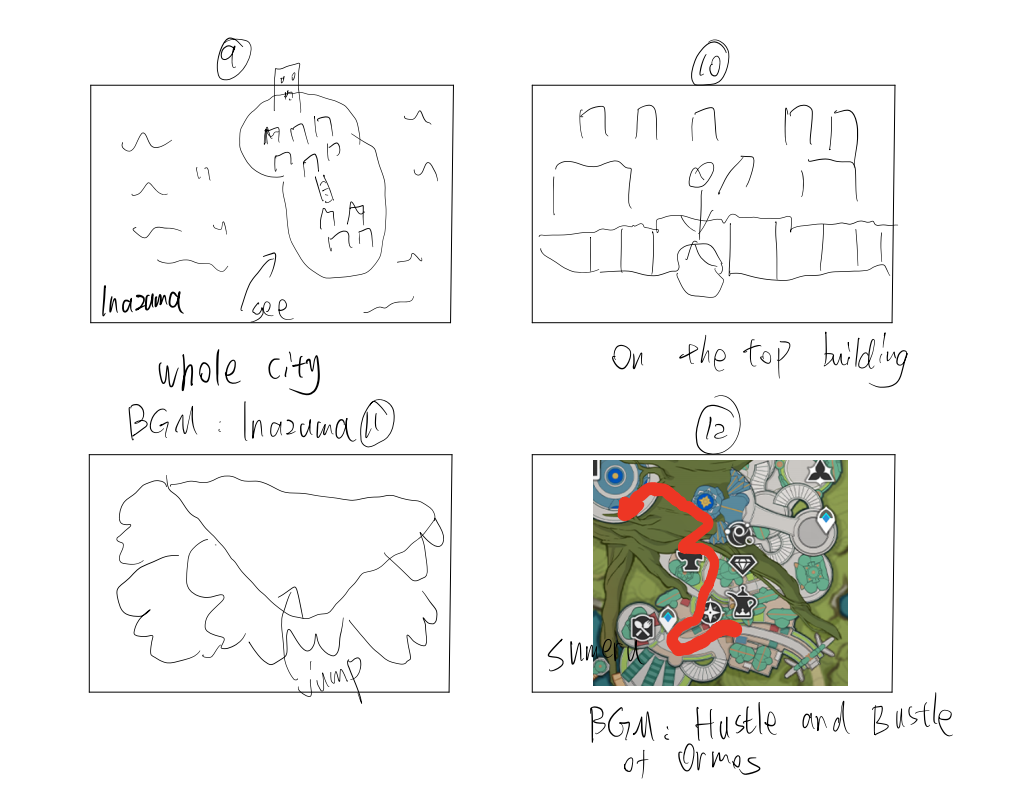 9
Inazuma
see
whole city
BGM: Inazuma
10
on the top building
11
jump
12
Sumeru
BGM: Hustle and Bustle
of Ormos